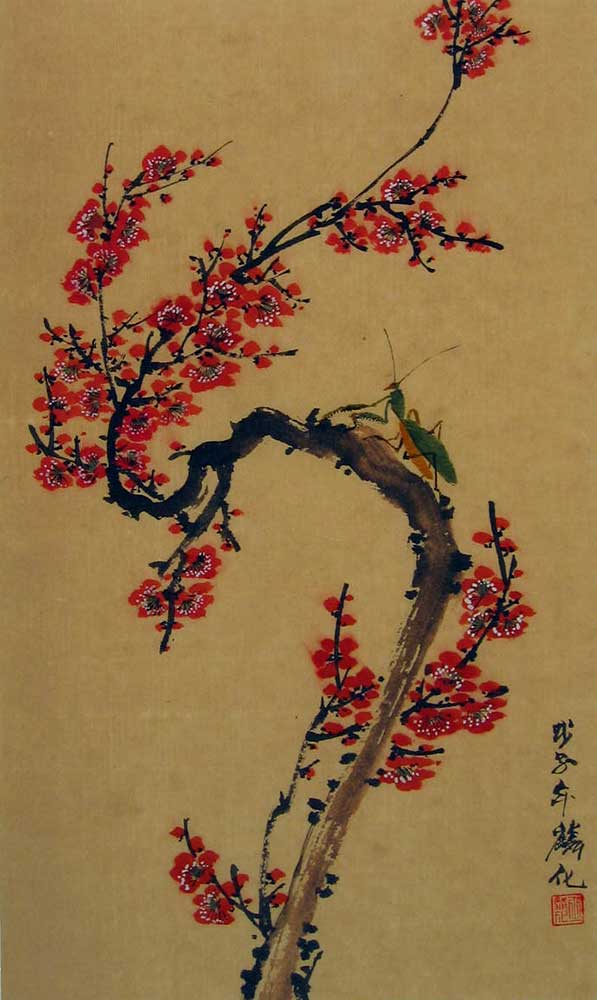 戊子年麟化